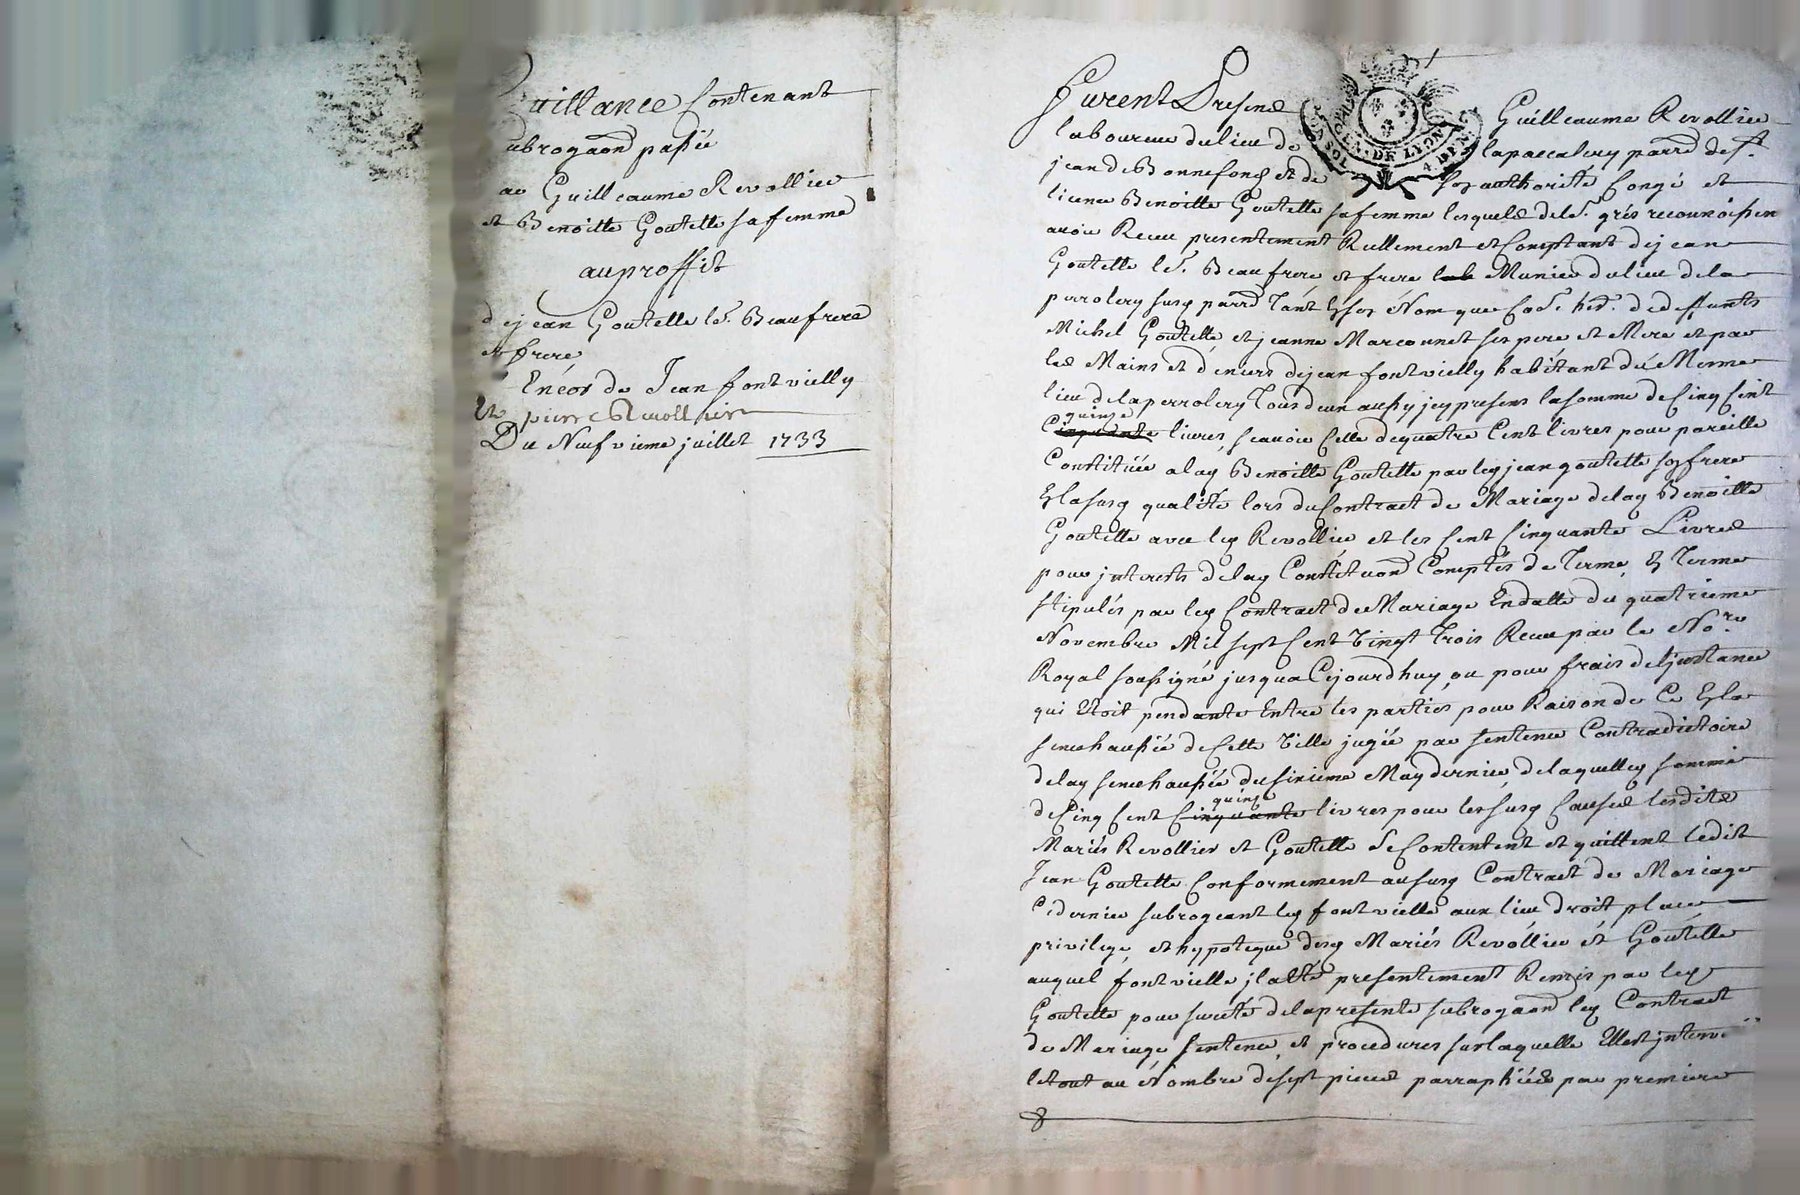 Quittance Contenant
subrogaon passée
au Guilleaume Revollier
et Benoitte Goutelle sa femme
au proffit
de jean Goutelle le.r Beaufrere
et frere
Encor de Jean fontvielly
Et pierre Revollier
Du Neufvieme juillet 1733
furent Presens Guilleaume Revollier
laboureur du lieu de lapacalery parre de st.
jean de Bonnefong et de son authorité Congé et
licence Benoitte Goutelle sa femme lesquels de le.r grés reconnoissen
avoir Receu presentement Reellement et Comptant de jean
Goutelle le.r Beaufrere et frere Munier du lieu de la
perrolery susq parre tant En son Nom que Coe. her. de deffunts
Michel Goutelle et jeanne Marconnet ses pere et Mere et par
les Mains et deniers de jean fontvielly habitant du Meme
lieu de la perrolery aussy jcy present la somme de Cinq Cent
quinze
Cinquante livres scavoir Celle de quatre Cent livres pour pareille
Constituée a lad Benoitte Goutelle par led jean goutelle son frere
En la susq qualité lors du Contract de Mariage de lad Benoitte
Goutelle avec led Revollier et les Cent Cinquante Livres
pour jnterests de lad Constituon Comptés de Terme En Terme
stipulés par led Contract de Mariage En datte du quatrieme
Novembre Mil sept Cent Vingt Trois Receu par le No.re
Royal soussigné jusqua Cejourdhuy, ou pour frais de Ljnstance
qui Etoit pendante Entre les parties pour Raison de Ce En la
senechaussée de Cette Ville jugée par sentence Contradictoire
de lad senechaussée du sixieme May dernier de laquelle somme
quinze
de Cinq Cent Cinquante livres pour les susq Causes lesdits
Mariés Revollier et Goutelle se Contentent et quittent ledit
Jean Goutelle Conformement au susq Contract de Mariage
Cy dernier subrogeant led fontvielle aux lieu droit place
privilege, et hypoteque desd Mariés Revollier et Goutelle
auquel fontvielle jl a Eté presentement Remis par led
Goutelle pour sureté de la presente subrogaon led Contract
de Mariage sentence, et procedures sur laquelle Elle est jnterve
le tout au Nombre de sept pieces parraphées par premiere